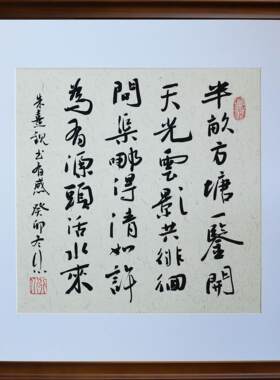 半畝方塘一鑒開
天光雲影共徘徊
問渠哪得清如許
為有源頭活水來
朱熹觀書有感 癸卯冬